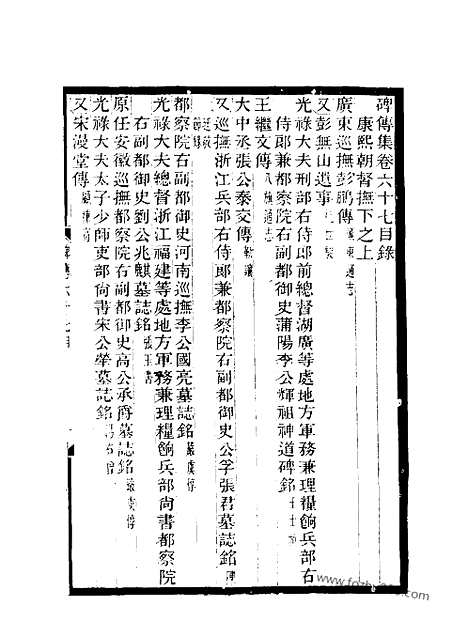 碑傳集卷六十七目錄
康熙朝督撫下之上
廣東巡撫彭鵬傳 廣東通志
又彭無山遺事
光祿大夫刑部右侍郎前總督湖廣等處地方軍務兼理糧餉兵部右
侍郎兼都察院右副都御史蒲陽李公輝祖神道碑銘 王士
王繼文傳 八旗通志
大中丞張公泰交傳
又巡撫浙江兵部右侍郎兼都察院右副都御史公孚張君墓誌銘 陳
廷敬
都察院右副都御史河南巡撫李公國亮墓誌銘 嚴虞惇
光祿大夫總督浙江福建等處地方軍務兼理糧餉兵部尚書都察院
右副都御史劉公兆麒墓誌銘 張玉書
原任安徽巡撫都察院右副都御史高公承爵墓誌銘 嚴虞惇
光祿大夫太子少師吏部尚書宋公犖墓誌銘 湯右曾
又宋漫堂傳
碑傳六十七目